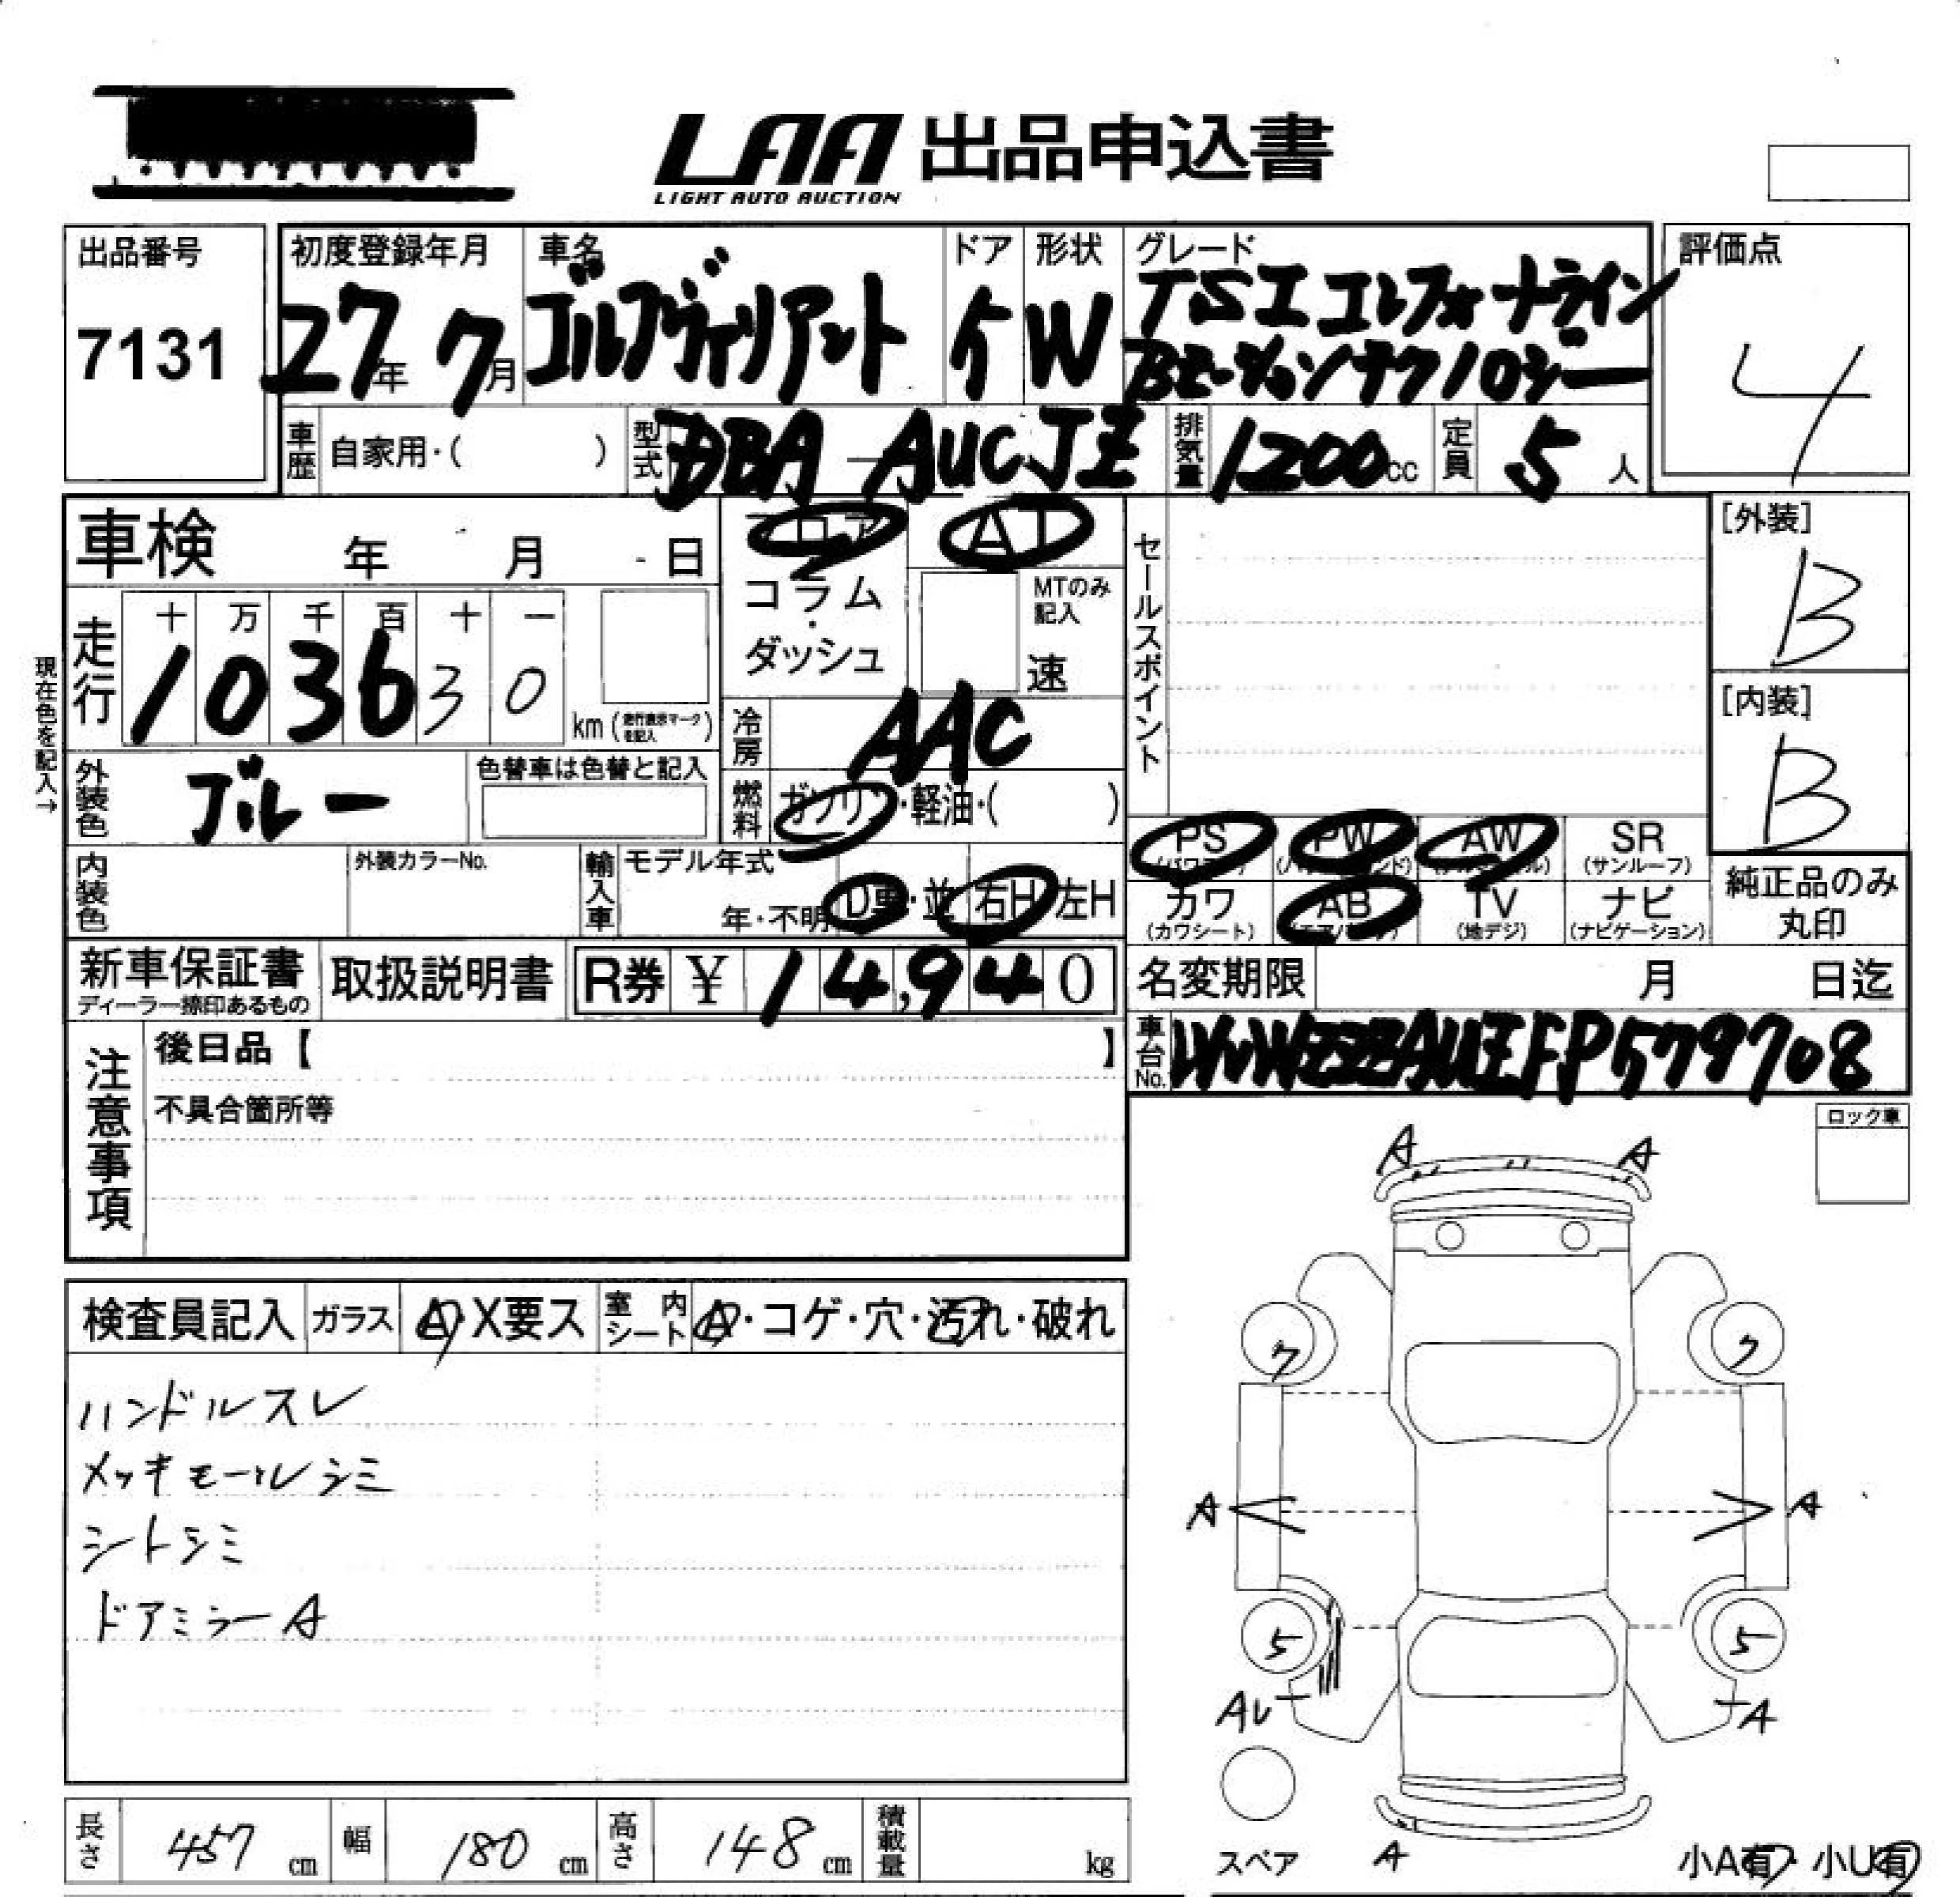 LAA 出品申込書
LIGHT AUTO AUCTION
出品番号
7131
初度登録年月
27年 7月
車名
ゴルフヴァリアント
ドア
5
形状
W
グレード
TSI コンフォートライン
Bモーションテクノロジー
評価点
4
車歴 自家用・( )
型式 DBA-AUCJZ
排気量 1200cc
定員 5人
車検 年 月 日
フロア
コラム
・
ダッシュ
AT
MTのみ記入
速
セールスポイント
[外装]
B
[内装]
B
現在色を記入→
走行 十 万 千 百 十 一
103630 km (走行表示マークを記入)
冷房 AAC
外装色 ブルー
色替車は色替と記入
燃料 ガソリン・軽油・( )
PS AW SR
(サンルーフ)
PW
内装色
外装カラーNo.
輸入車 モデル年式
年・不明 D車・並 右H 左H
カワ AB TV ナビ
(カワシート) (地デジ) (ナビゲーション)
純正品のみ
丸印
新車保証書
ディーラー捺印あるもの
取扱説明書
R券 ¥14,940
名変期限 月 日迄
車台No. WVWZZZAUZFP579708
注意事項
後日品【 】
不具合箇所等
ロック車
検査員記入 ガラス A・X要ス 室内シート A・コゲ・穴・汚れ・破れ
ハンドルスレ
メッキモールシミ
シートシミ
ドアミラーA
A A
7 7
A A
5 5
A
スペア A
小A有・小U有
長さ 457cm 幅 180cm 高さ 148cm 積載量 kg